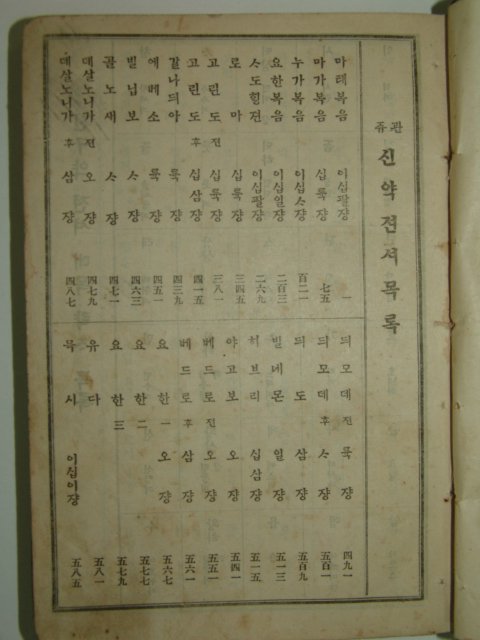 관쥬 신약젼셔목록
마태복음 이십팔쟝 一
마가복음 십륙쟝 七五
누가복음 이십ᄉ쟝 百二一
요한복음 이십일쟝 二百三
ᄉ도ᄒᆡᆼ젼 이십팔쟝 二六九
로마 십륙쟝 三四五
고린도젼 십륙쟝 三八一
고린도후 십삼쟝 四一五
갈나듸아 륙쟝 四三九
에베소 륙쟝 四五一
빌닙보 ᄉ쟝 四六三
골노새 ᄉ쟝 四七一
데살노니가젼 오쟝 四七九
데살노니가후 삼쟝 四八七
듸모데젼 륙쟝 四九一
듸모데후 ᄉ쟝 五百一
듸도 삼쟝 五百九
빌네몬 일쟝 五一三
히브리 십삼쟝 五一五
야고보 오쟝 五四一
베드로젼 오쟝 五五一
베드로후 삼쟝 五六一
요한一 오쟝 五六七
요한二 五七七
요한三 五七九
유다 五八一
묵시 이십이쟝 五八五